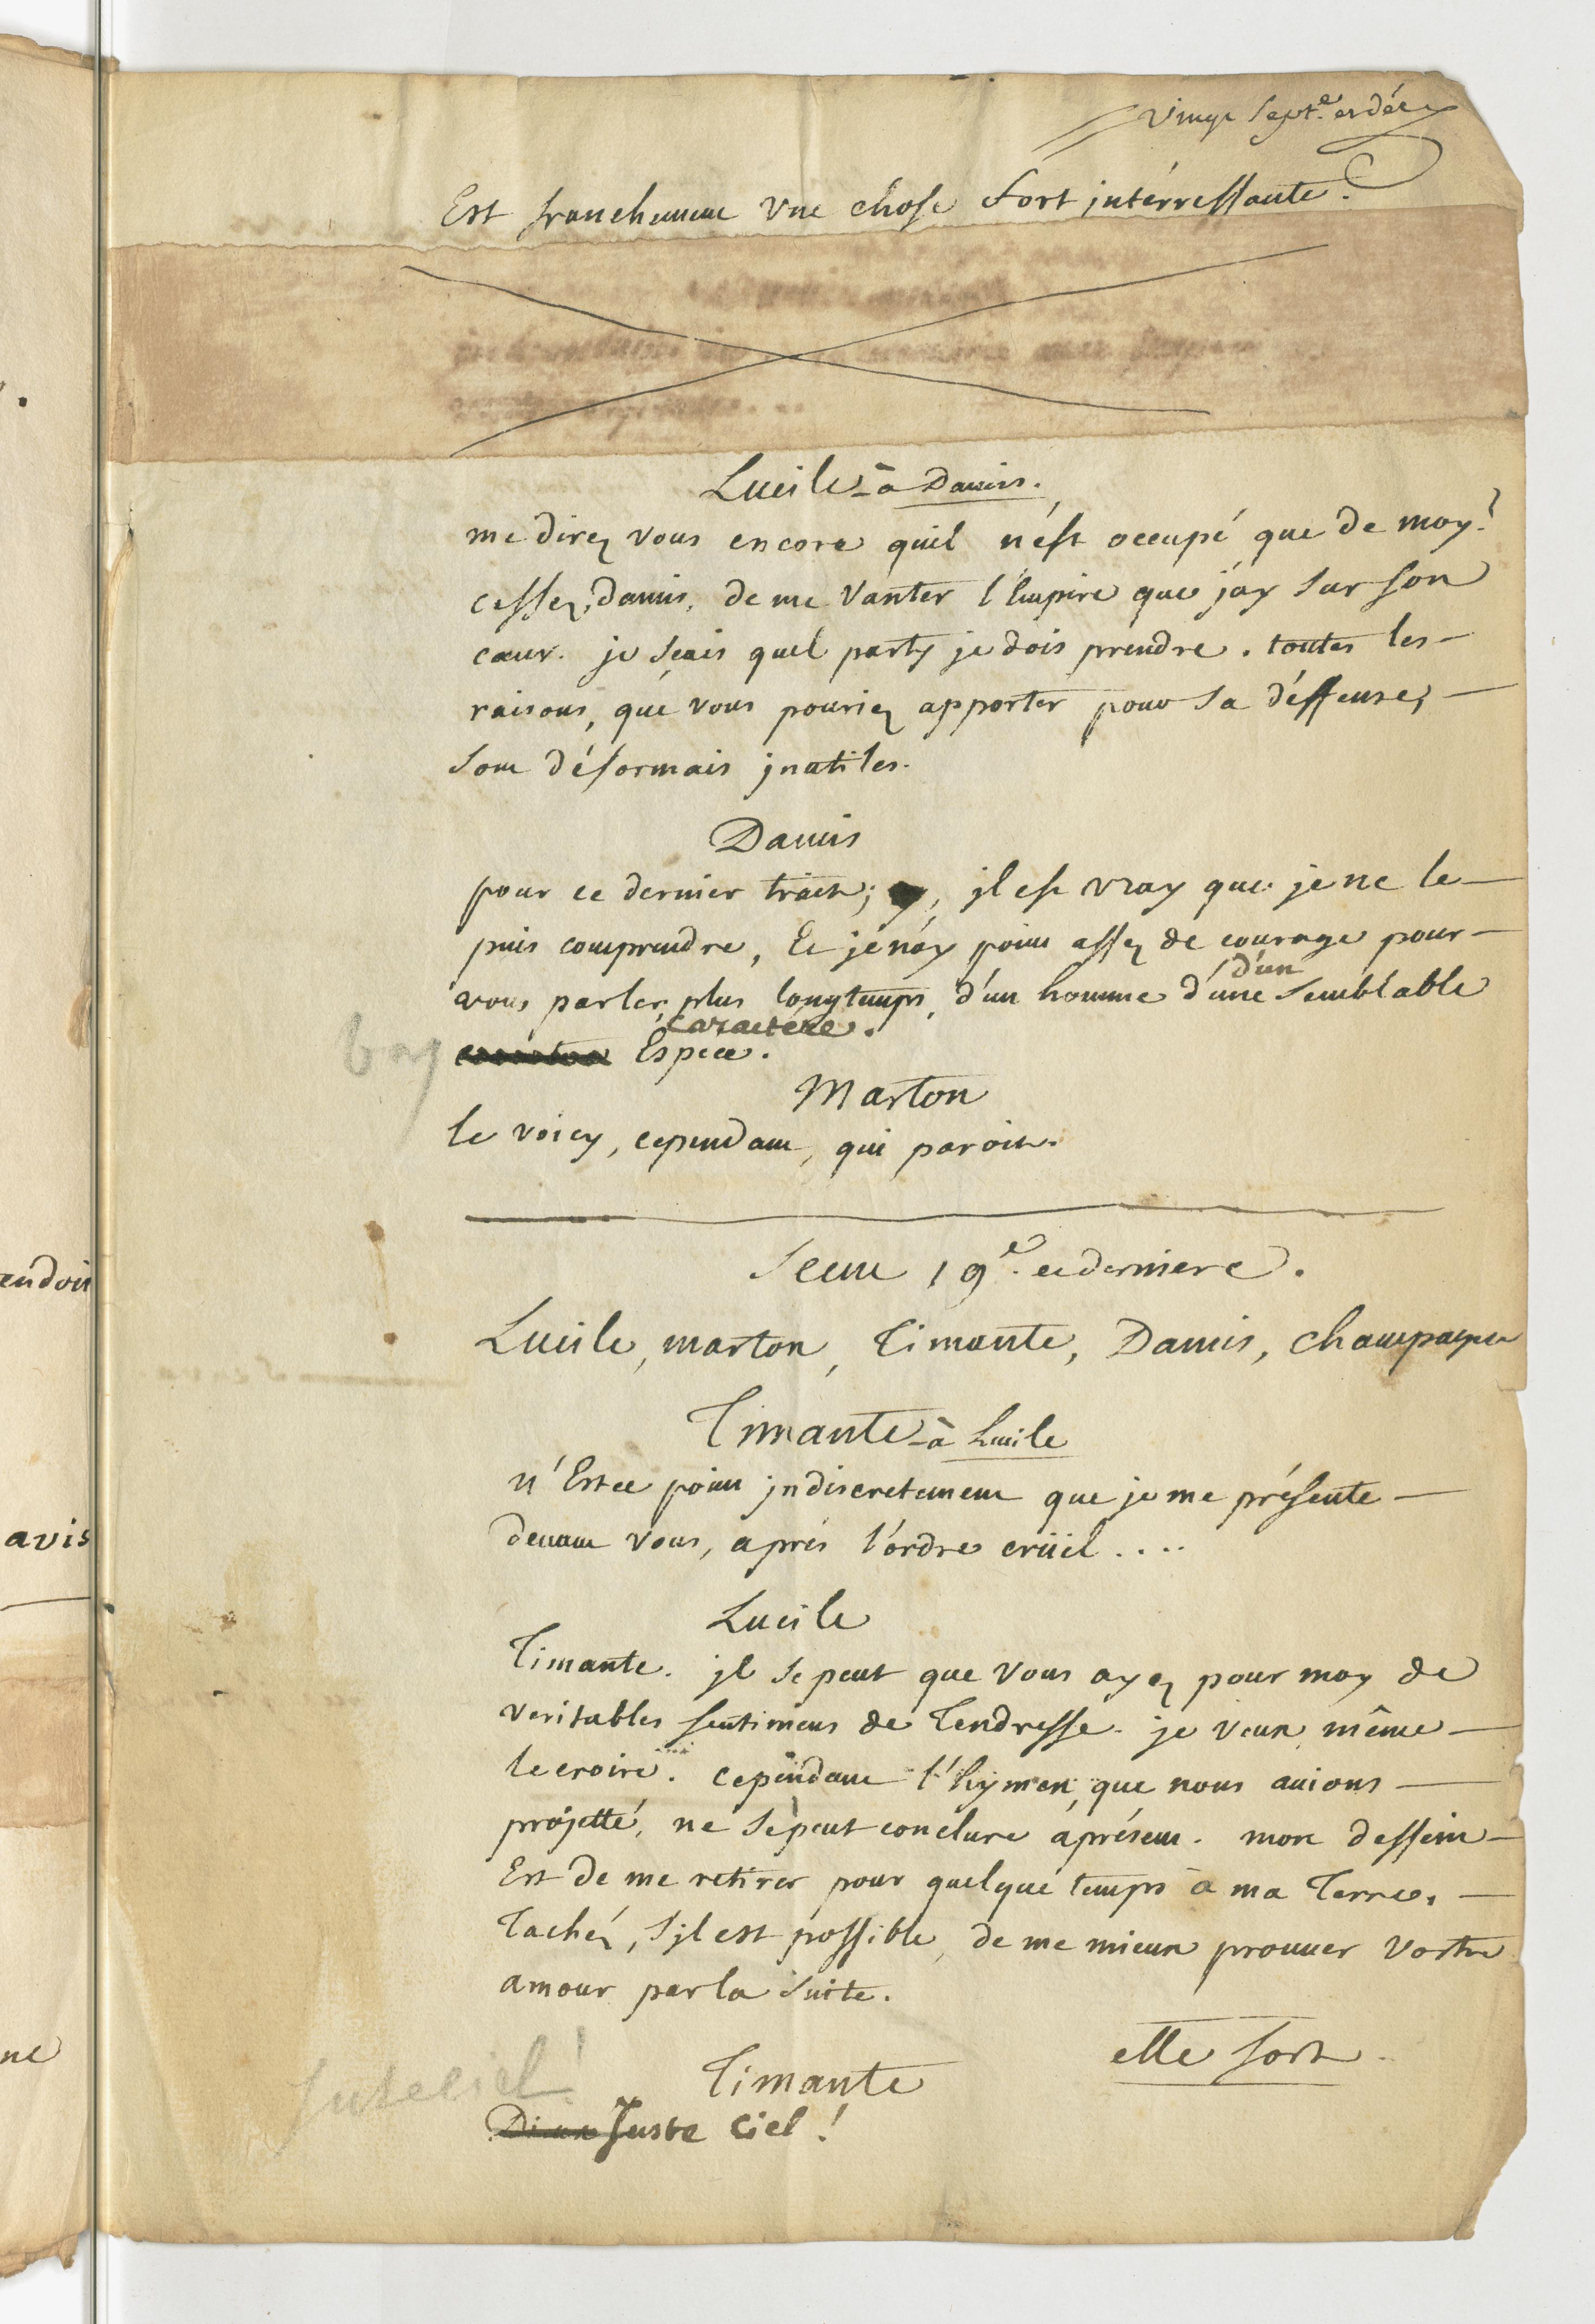 vingt sept.e et der
Est franchement une chose fort intérressante.
Lucile à Damis.
me direz vous encore quil n'est occupé que de moy?
cessez, damis, de me vanter l'Empire que j'ay sur son
cœur. je sçais quel party je dois prendre. toutes les
raisons, que vous pouriez apporter pour sa déffense,
sont désormais jnutiles.
Damis
pour ce dernier trait; jl est vray que je ne le
puis comprendre, Et je n'ay point assez de courage pour
vous parler, plus longtemps, d'un homme d'une semblable
d'un
caractére.
bon
Espece.
Marton
le voicy, cependant, qui paroit.
Scene 19e. et derniere.
Lucile, marton, Timante, Damis, champagne
Timante à Lucile
n'Est ce point jndiscretement que je me présente
devant vous, aprés l'ordre crüel ....
Lucile
Timante. jl se peut que vous ayez pour moy de
veritables sentimens de Tendresse. je veux même
le croire. cependant l'hymen, que nous avions
projetté, ne se peut conclure àprésent. mon dessein
Est de me retirer pour quelque temps à ma Terre.
Tachéz, s'jl est possible, de me mieux prouver vostre
amour par la suite.
elle sort.
Timante
juste ciel!
Dieux Juste Ciel!
endoit
avis
ne